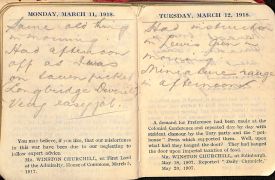 MONDAY, MARCH 11, 1918.
Same old thing
Had afternoon
off as I was
on town picket
Longbridge Deverill
Very easy job.
You may believe, if you like, that our misfortunes
in this war have been due to our neglecting to
follow expert advice.
Mr. WINSTON CHURCHILL, as First Lord
of the Admiralty, House of Commons, March 5,
1917.
TUESDAY, MARCH 12, 1918.
Had instruction
on Lewis Gun in
Miniature range
in afternoon
A demand for Preference had been made at the
Colonial Conference and repeated day by day with
strident clamour by the Tory party and the "pot-
house" Press which supported them. Well, upon
what had they banged the door? They had banged
the door upon imperial taxation of food.
Mr. WINSTON CHURCHILL, at Edinburgh,
May 18, 1907. Reported "Daily Chronicle,"
May 20, 1907.